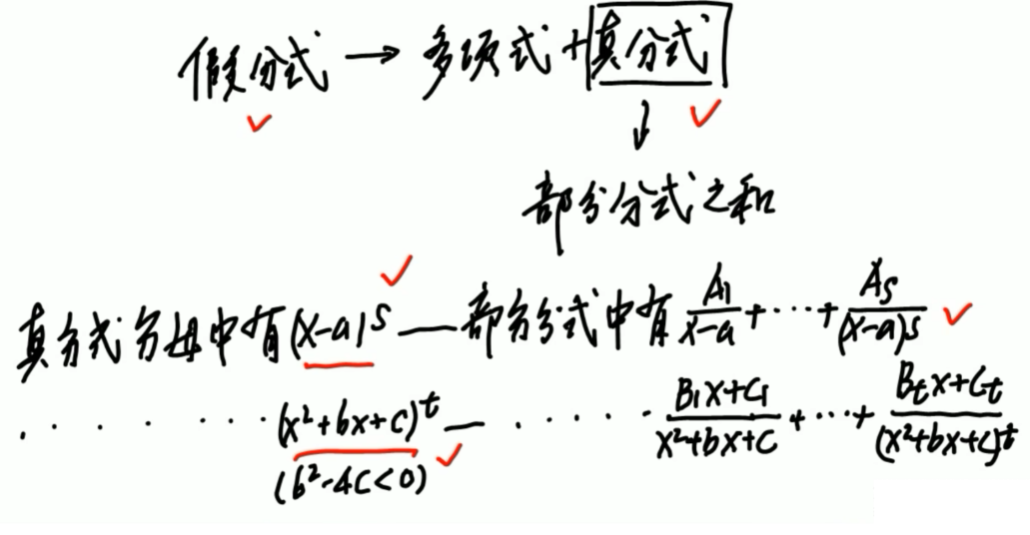 假分式 → 多项式 + 真分式
↓
部分分式之和
真分式分母中有 (x-a)^s — 部分分式中有 A₁/(x-a) + ··· + A_s/(x-a)^s
· · · · · · (x²+bx+c)^t — · · · · · (B₁x+C₁)/(x²+bx+c) + ··· + (B_t x+C_t)/(x²+bx+c)^t
(b²-4c<0)